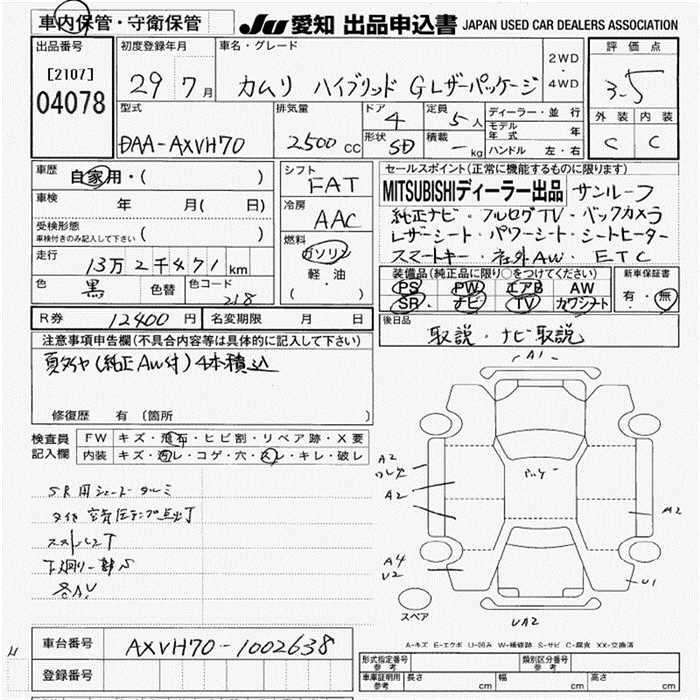 車内保管・守衛保管 JU 愛知 出品申込書 JAPAN USED CAR DEALERS ASSOCIATION
出品番号 初度登録年月 車名・グレード 評価点
[2107] 29年7月 カムリ ハイブリッド Gレザーパッケージ 2WD・4WD 3.5
04078
型式 排気量 ドア 4 定員 5人 ディーラー・並行 外装 内装
DAA-AXVH70 2500cc 形状 SD 積載 - kg モデル年式 年 C C
ハンドル 左・右
車歴 自家用・( ) シフト FAT セールスポイント(正常に機能するものに限ります)
車検 年 月( 日) 冷房 AAC MITSUBISHIディーラー出品 サンルーフ
受検形態 ( ) 純正ナビ・フルセグTV・バックカメラ
車検付きのみ記入して下さい レザーシート・パワーシート・シートヒーター
走行 13万2千471km 燃料 ガソリン スマートキー・社外AW・ETC
色 黒 色替 色コード 218 軽・油 ( )
装備品(純正品に限り○をつけてください) 新車保証書
PS PW エアB AW 有・無
SR ナビ TV カワシート
R券 12400円 名変期限 月 日 後日品
取説・ナビ取説
注意事項申告欄(不具合内容等は具体的に記入して下さい)
夏タイヤ(純正AW付)4本積込
修復歴 有(箇所 )
検査員記入欄 FW キズ・飛石・ヒビ割・リペア跡・X要
内装 キズ・汚レ・コゲ・穴・スレ・キレ・破レ
SR用シェードタルミ
タイヤ空気圧ランプ点灯
下廻り一部S
A1
A2
A2
A2
A4
U2
U1
UA2
スペア
A-キズ E-エクボ U-凹み W-補修跡 S-サビ C-腐食 XX-交換済
車台番号 AXVH70-1002638
登録番号
形式指定番号 参考 類別区分番号 参考
車庫証明用 参考 長さ cm 幅 cm 高さ cm